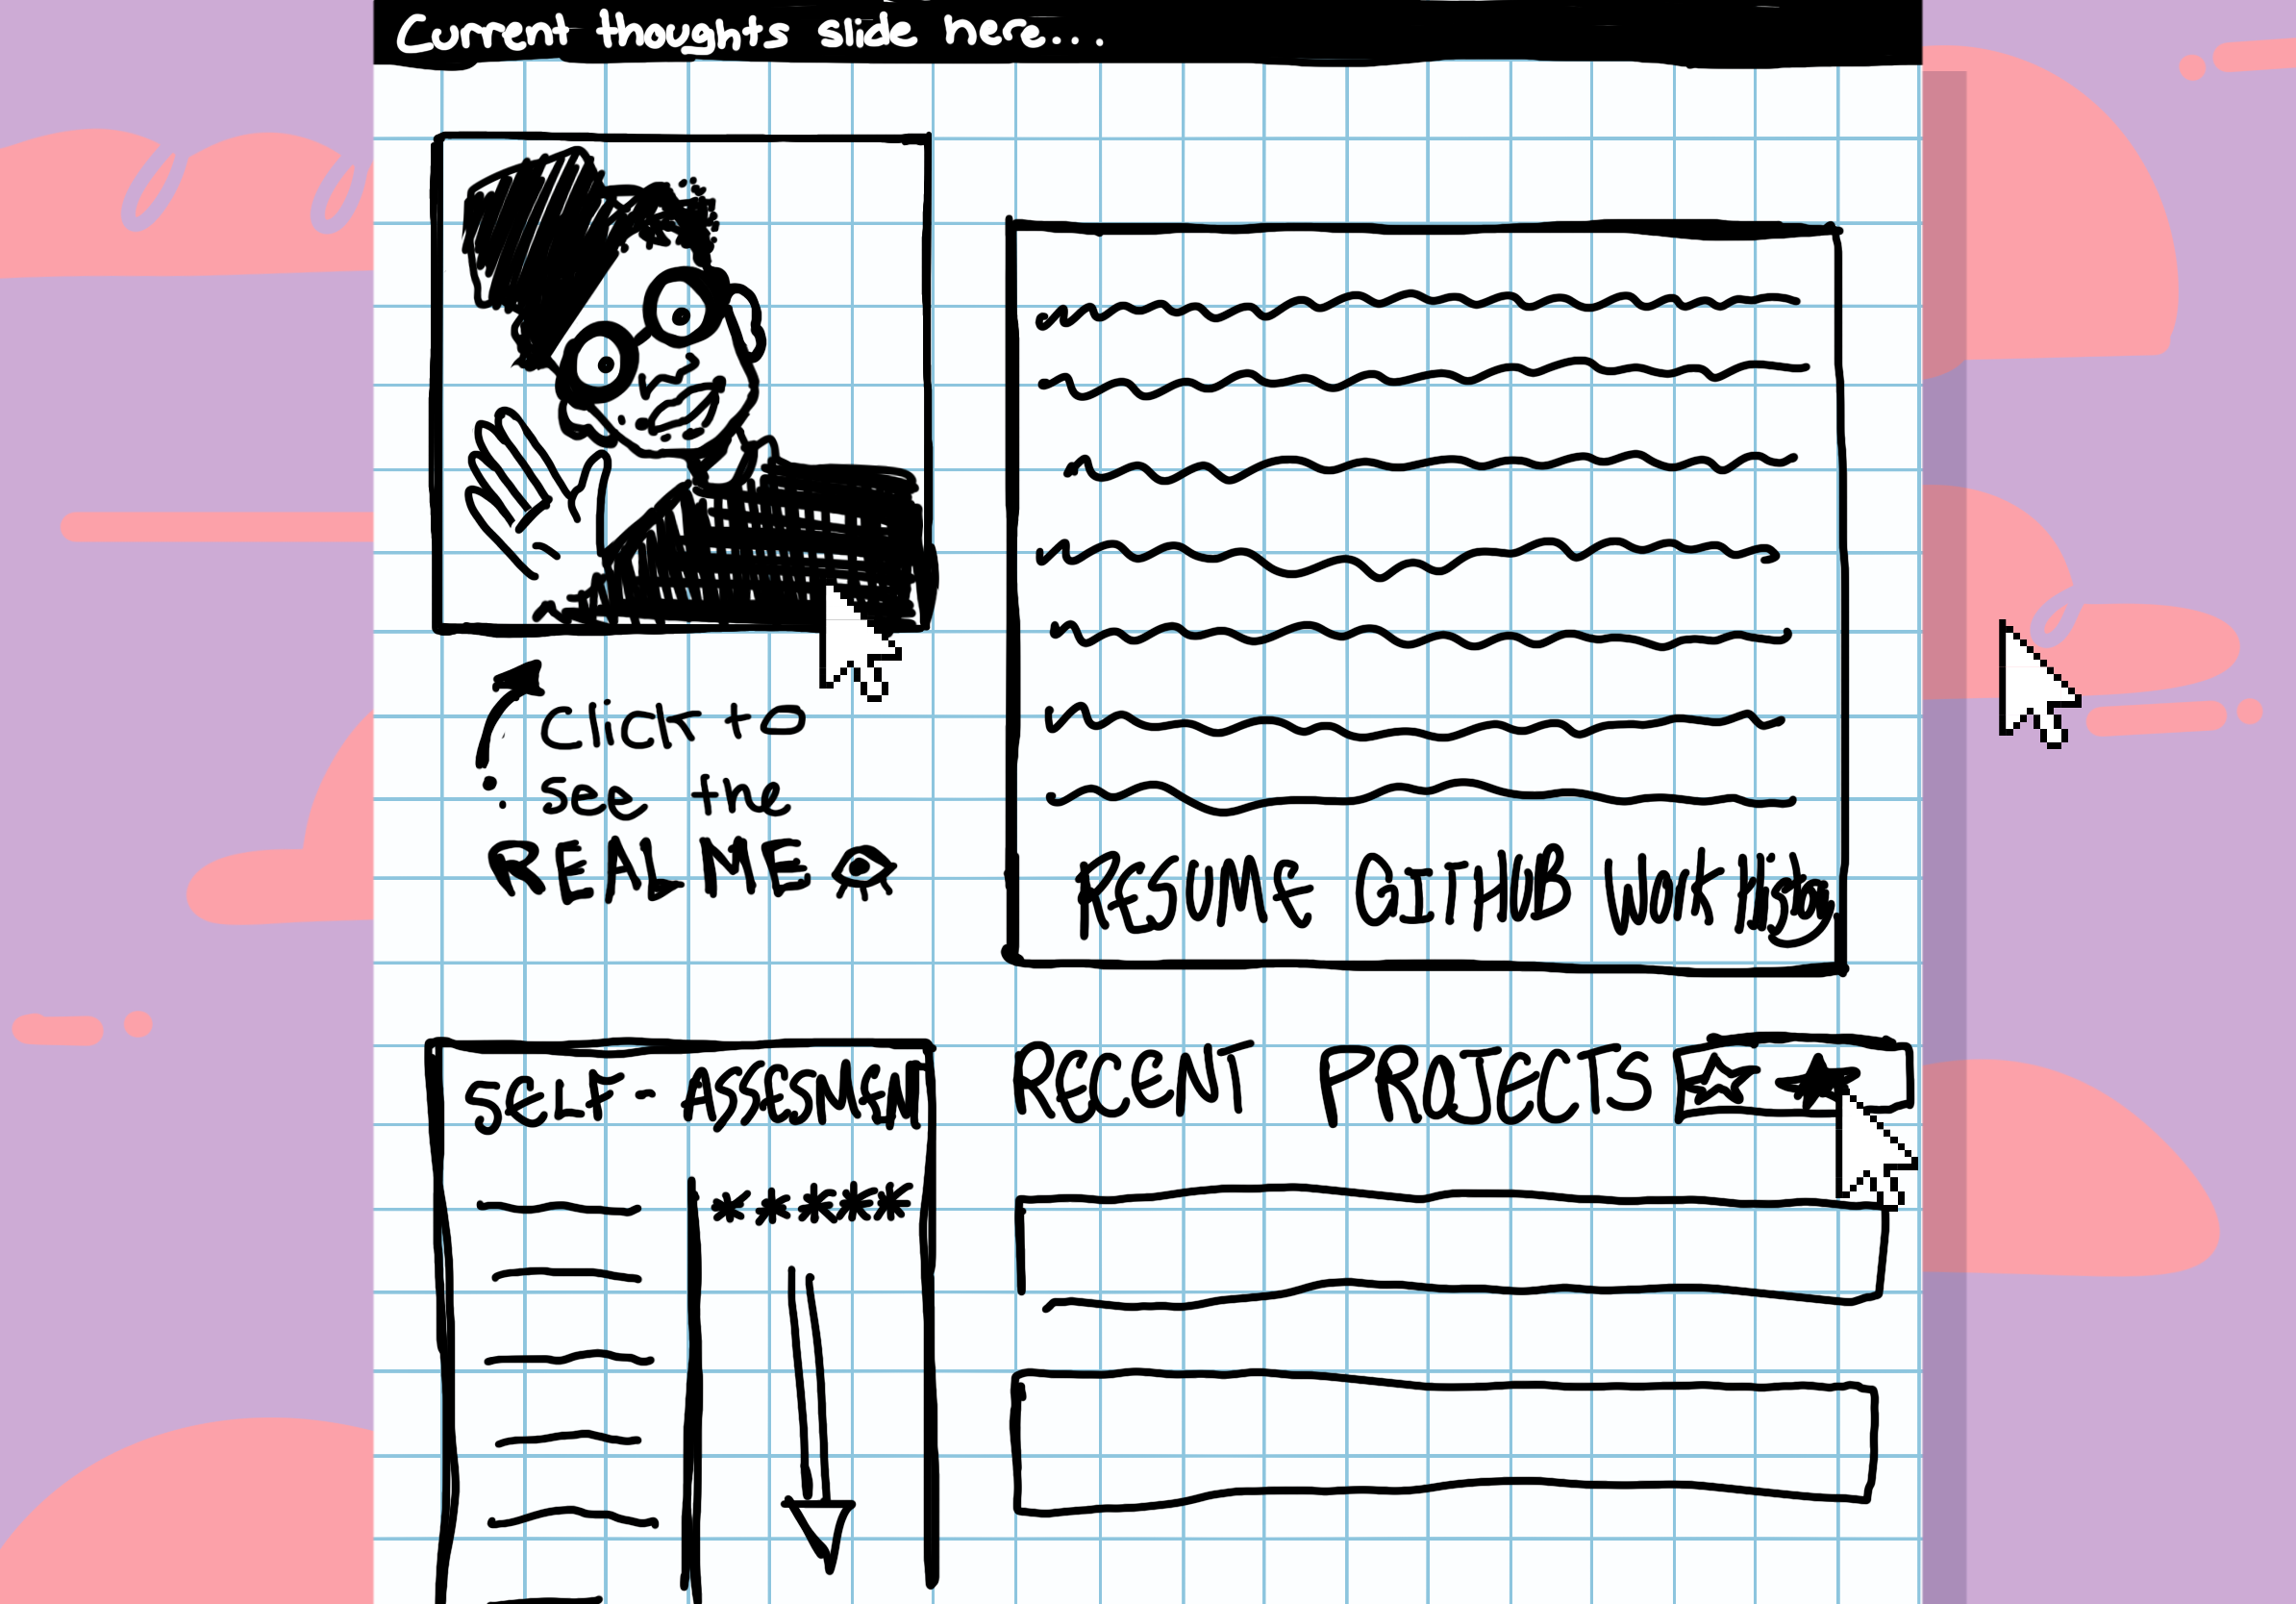 Current thoughts slide here...
Click to
see the
REAL ME
RESUME GITHUB Work History
SELF-ASSESMEN
*****
RECENT PROJECTS